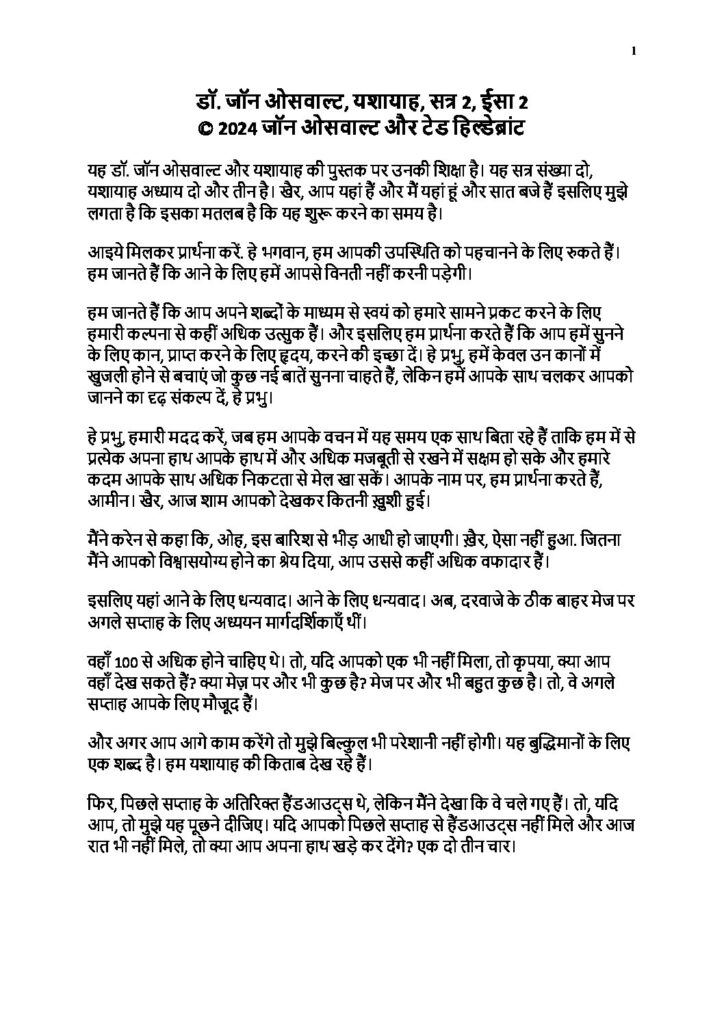 1
डॉ. जॉन ओसवाल्ट, यशायाह, सत्र 2, ईसा 2
© 2024 जॉन ओसवाल्ट और टेड हिल्डेब्रांट
यह डॉ. जॉन ओसवाल्ट और यशायाह की पुस्तक पर उनकी शिक्षा है। यह सत्र संख्या दो,
यशायाह अध्याय दो और तीन है। खैर, आप यहां हैं और मैं यहां हूं और सात बजे हैं इसलिए मुझे
लगता है कि इसका मतलब है कि यह शुरू करने का समय है।
आइये मिलकर प्रार्थना करें. हे भगवान, हम आपकी उपस्थिति को पहचानने के लिए रुकते हैं।
हम जानते हैं कि आने के लिए हमें आपसे विनती नहीं करनी पड़ेगी।
हम जानते हैं कि आप अपने शब्दों के माध्यम से स्वयं को हमारे सामने प्रकट करने के लिए
हमारी कल्पना से कहीं अधिक उत्सुक हैं। और इसलिए हम प्रार्थना करते हैं कि आप हमें सुनने
के लिए कान, प्राप्त करने के लिए हृदय, करने की इच्छा दें। हे प्रभु, हमें केवल उन कानों में
खुजली होने से बचाएं जो कुछ नई बातें सुनना चाहते हैं, लेकिन हमें आपके साथ चलकर आपको
जानने का दृढ़ संकल्प दें, हे प्रभु।
हे प्रभु, हमारी मदद करें, जब हम आपके वचन में यह समय एक साथ बिता रहे हैं ताकि हम में से
प्रत्येक अपना हाथ आपके हाथ में और अधिक मजबूती से रखने में सक्षम हो सके और हमारे
कदम आपके साथ अधिक निकटता से मेल खा सकें। आपके नाम पर, हम प्रार्थना करते हैं,
आमीन। खैर, आज शाम आपको देखकर कितनी ख़ुशी हुई।
मैंने करेन से कहा कि, ओह, इस बारिश से भीड़ आधी हो जाएगी। ख़ैर, ऐसा नहीं हुआ. जितना
मैंने आपको विश्वासयोग्य होने का श्रेय दिया, आप उससे कहीं अधिक वफादार हैं।
इसलिए यहां आने के लिए धन्यवाद। आने के लिए धन्यवाद। अब, दरवाजे के ठीक बाहर मेज पर
अगले सप्ताह के लिए अध्ययन मार्गदर्शिकाएँ थीं।
वहाँ 100 से अधिक होने चाहिए थे। तो, यदि आपको एक भी नहीं मिला, तो कृपया, क्या आप
वहाँ देख सकते हैं? क्या मेज़ पर और भी कुछ है? मेज पर और भी बहुत कुछ है। तो, वे अगले
सप्ताह आपके लिए मौजूद हैं।
और अगर आप आगे काम करेंगे तो मुझे बिल्कुल भी परेशानी नहीं होगी। यह बुद्धिमानों के लिए
एक शब्द है। हम यशायाह की किताब देख रहे हैं।
फिर, पिछले सप्ताह के अतिरिक्त हैंडआउट्स थे, लेकिन मैंने देखा कि वे चले गए हैं। तो, यदि
आप, तो मुझे यह पूछने दीजिए। यदि आपको पिछले सप्ताह से हैंडआउट्स नहीं मिले और आज
रात भी नहीं मिले, तो क्या आप अपना हाथ खड़े कर देंगे? एक दो तीन चार।